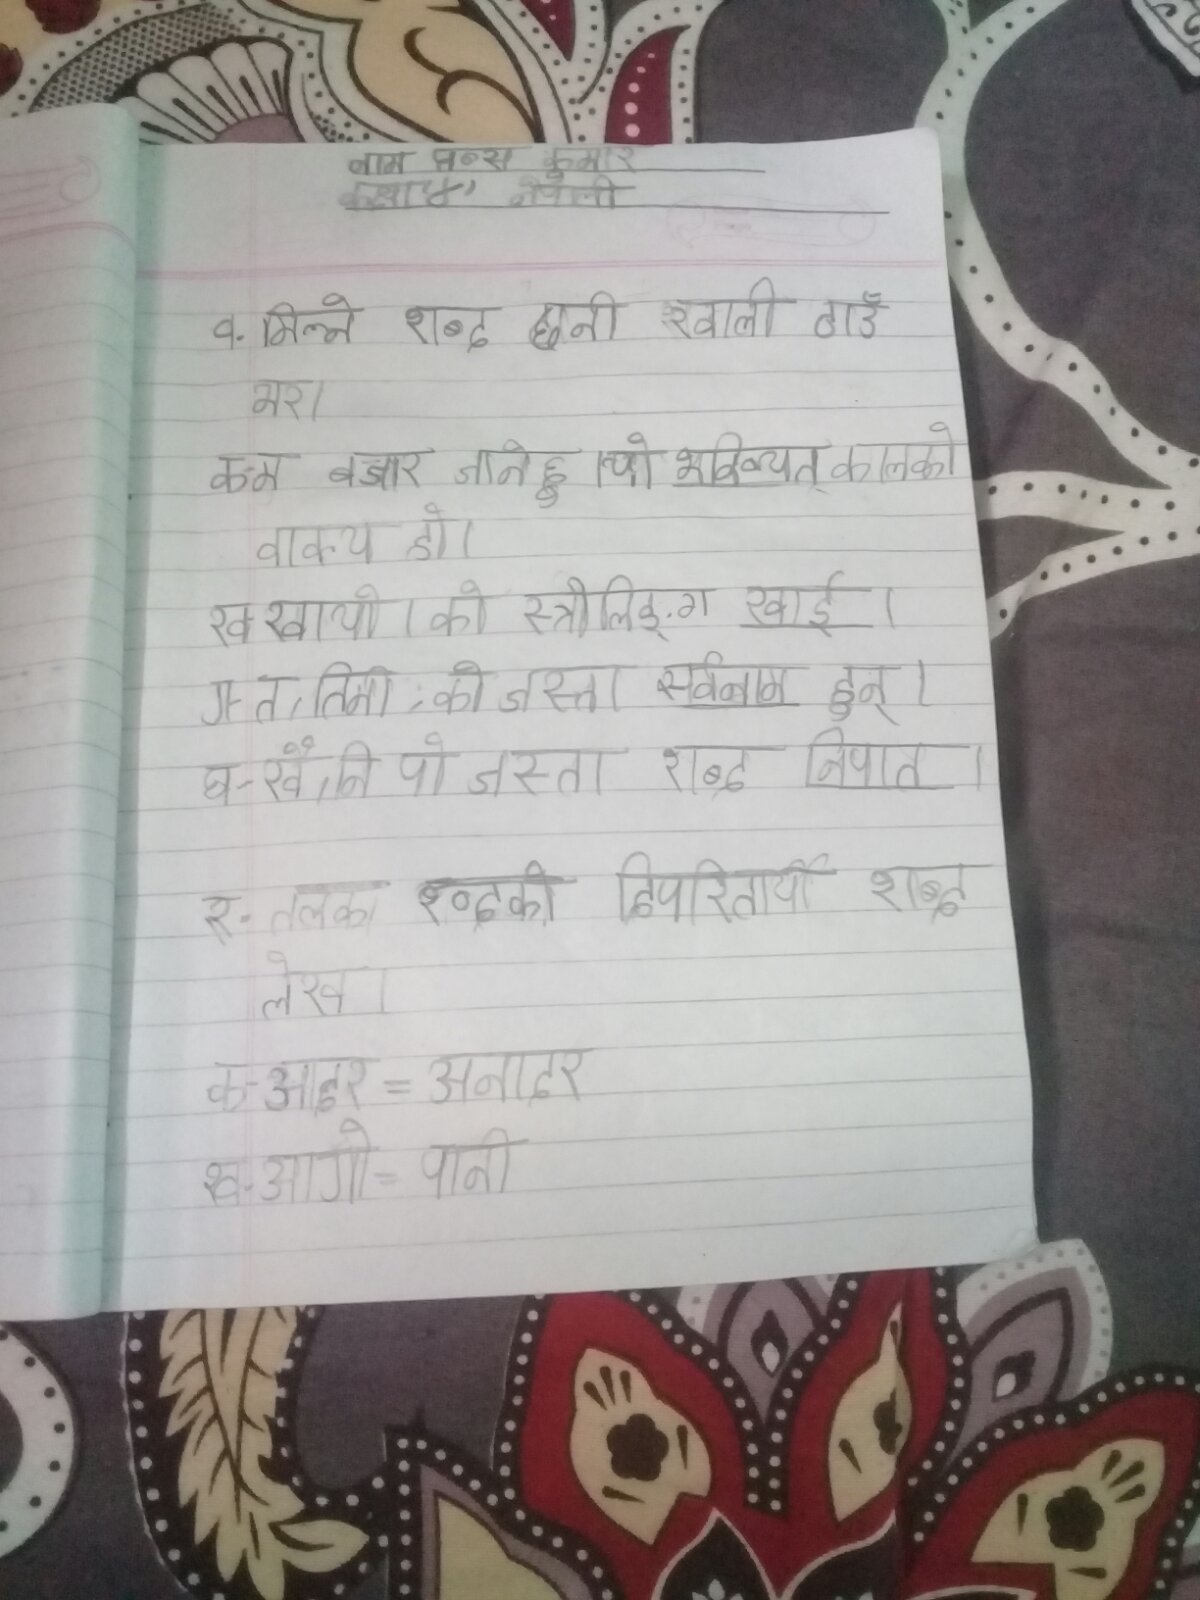 नाम प्रन्स कुमार
कक्षा ४' नेपाली
१. मिल्ने शब्द छानी खाली ठाउँ
भर।
क-म बजार जानेछु ।यो भविष्यत् कालको
वाक्य हो।
ख-खायो । को स्त्रीलिङ्ग खाई ।
ग-त,तिमी, को जस्ता सर्वनाम हुन् ।
घ-खै,नि पो जस्ता शब्द निपात ।
२- तलका श्ब्दको विपरितार्थी शब्द
लेख ।
क-आदर = अनादर
ख-आगो= पानी